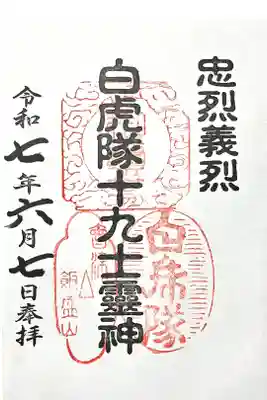 忠烈義烈
白虎隊十九士靈神
令和七年六月七日奉拝
白虎隊
飯盛山